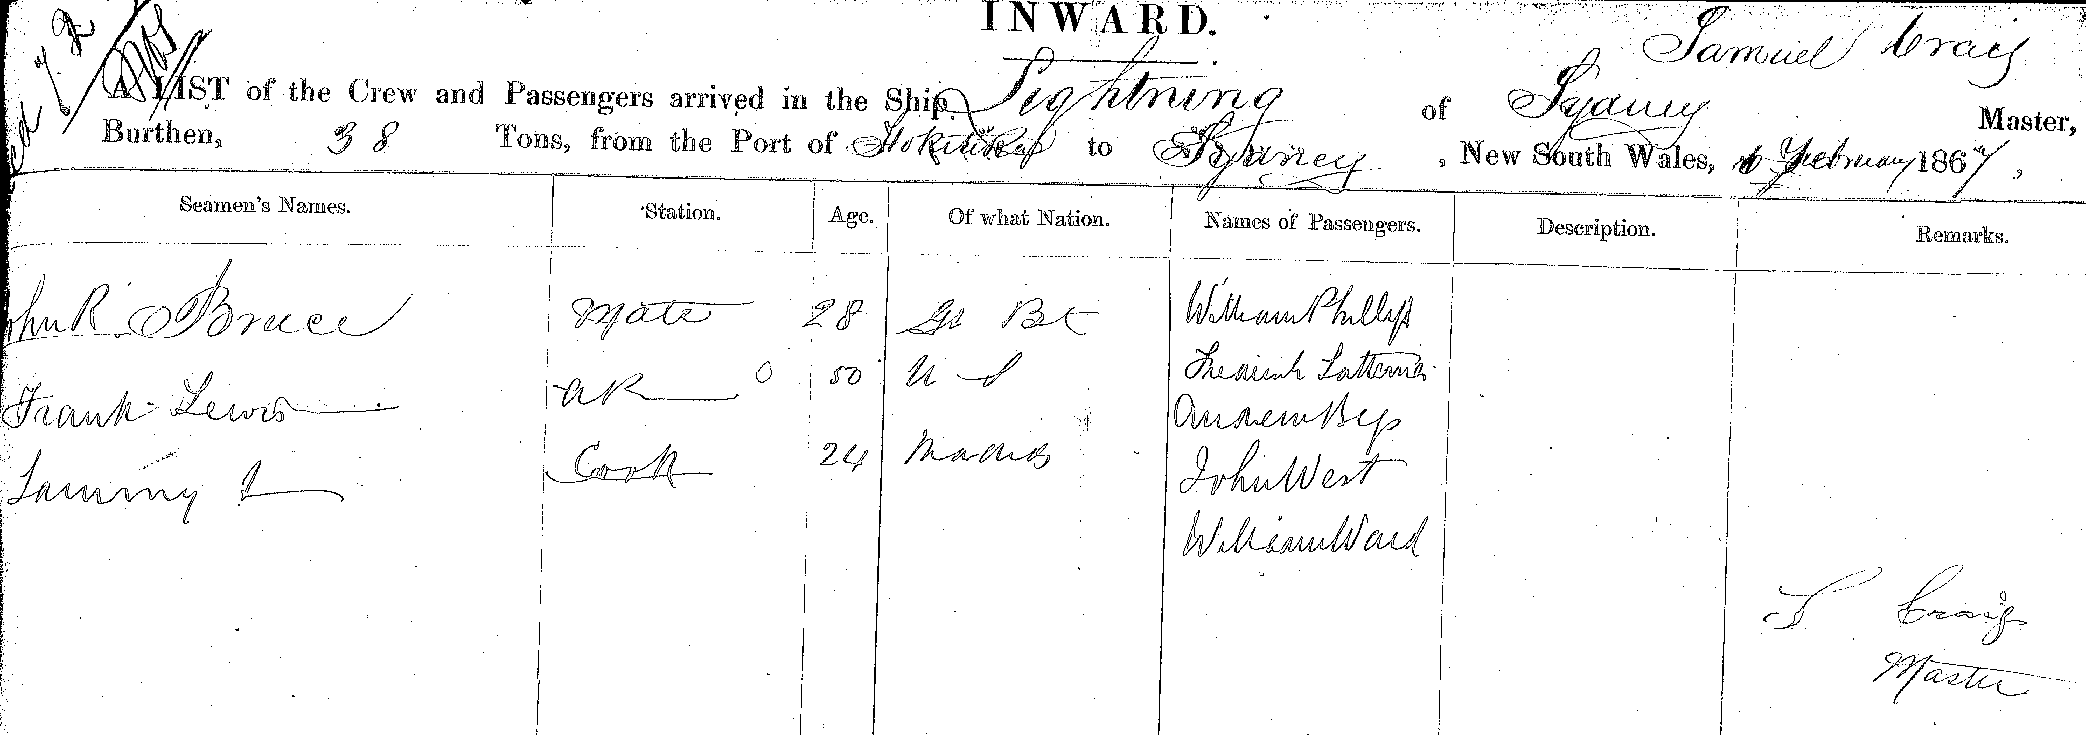 INWARD.
Samuel Craig
A LIST of the Crew and Passengers arrived in the Ship Lightning of Sydney Master,
Burthen, 38 Tons, from the Port of Hokitika to Sydney, New South Wales, 6 February 1867,
Seamen's Names. Station. Age. Of what Nation. Names of Passengers. Description. Remarks.
John R Bruce Mate 28 Gt Bt William Phillips
Frank Lewis AB 50 U S Frederick
Andrew
Sammy Cook 24 Madras John West
William Ward
S Craig
Master